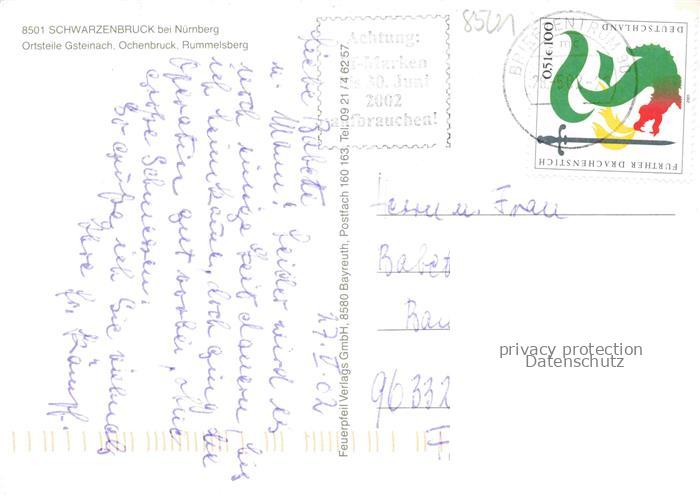 8501 SCHWARZENBRUCK bei Nürnberg
Ortsteile Gsteinach, Ochenbruck, Rummelsberg
Achtung:
-Marken
bis 30. Juni
2002
aufbrauchen!
8501
BRIEFZENTRUM 90
DEUTSCHLAND
0,51 € 100
FURTHER DRACHENSTICH
Feuerpfeil Verlags GmbH, 8580 Bayreuth, Postfach 160 163, Tel. 09 21 / 4 62 57
17. V. 02
Liebe Babette
u. Mann! Leider wird es
noch einige Zeit dauern, bis
ich heimkomme, doch ging die
Operation gut vorbei, ohne
große Schmerzen.
So grüße ich Sie vielmals
Ihre
Herrn u. Frau
Babet
Bau
96332
privacy protection
Datenschutz